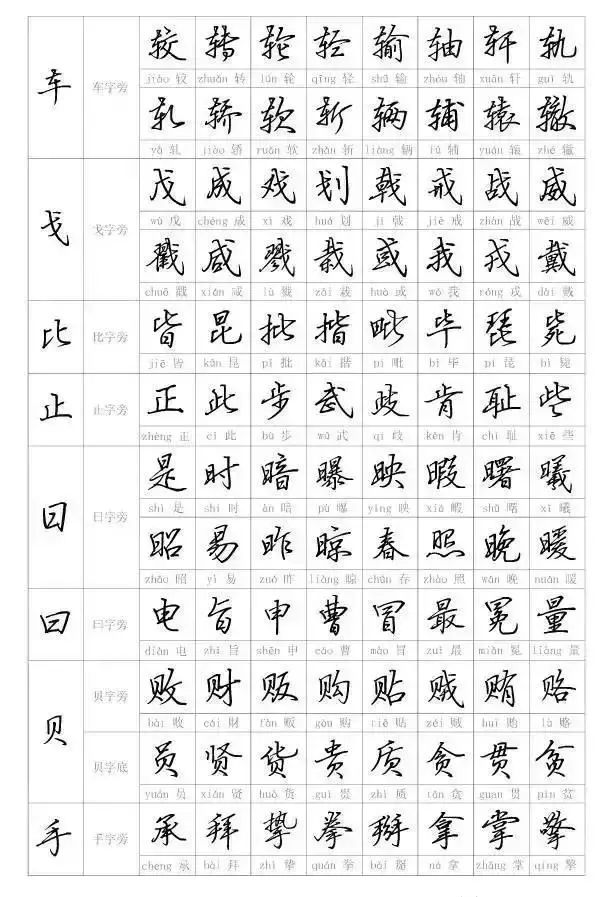 较 转 轮 轻 输 轴 轩 轨
车 车字旁
jiào 较 zhuǎn 转 lún 轮 qīng 轻 shū 输 zhóu 轴 xuān 轩 guǐ 轨
轧 轿 软 斩 辆 辅 辕 辙
yà 轧 jiào 轿 ruǎn 软 zhǎn 斩 liàng 辆 fǔ 辅 yuán 辕 zhé 辙
戊 成 戏 划 戟 戒 战 威
戈 戈字旁
wù 戊 chéng 成 xì 戏 huá 划 jǐ 戟 jiè 戒 zhàn 战 wēi 威
戳 咸 戮 栽 或 我 戎 戴
chuō 戳 xián 咸 lù 戮 zāi 栽 huò 或 wǒ 我 róng 戎 dài 戴
比 比字旁
皆 昆 批 揩 毗 毕 琵 毙
jiē 皆 kūn 昆 pī 批 kāi 揩 pí 毗 bì 毕 pí 琵 bì 毙
止 止字旁
正 此 步 武 歧 肯 耻 些
zhèng 正 cǐ 此 bù 步 wǔ 武 qí 歧 kěn 肯 chǐ 耻 xiē 些
是 时 暗 曝 映 暇 曙 曦
日 日字旁
shì 是 shí 时 àn 暗 pù 曝 yìng 映 xiá 暇 shǔ 曙 xī 曦
昭 易 昨 晾 春 照 晚 暖
zhāo 昭 yì 易 zuó 昨 liàng 晾 chūn 春 zhào 照 wǎn 晚 nuǎn 暖
曰 曰字旁
电 旨 申 曹 冒 最 冕 量
diàn 电 zhǐ 旨 shēn 申 cáo 曹 mào 冒 zuì 最 miǎn 冕 liàng 量
败 财 贩 购 贴 贼 贿 赂
贝 贝字旁
bài 败 cái 财 fàn 贩 gòu 购 tiē 贴 zéi 贼 huì lù 赂
员 贤 货 贵 质 贪 贯 贫
贝字底
yuán 员 xián 贤 huò 货 guì 贵 zhì 质 tān 贪 guàn 贯 pín 贫
手 手字旁
承 拜 挚 拳 掰 拿 掌 擎
chéng 承 bài 拜 zhì 挚 quán 拳 bāi 掰 ná 拿 zhǎng 掌 qíng 擎